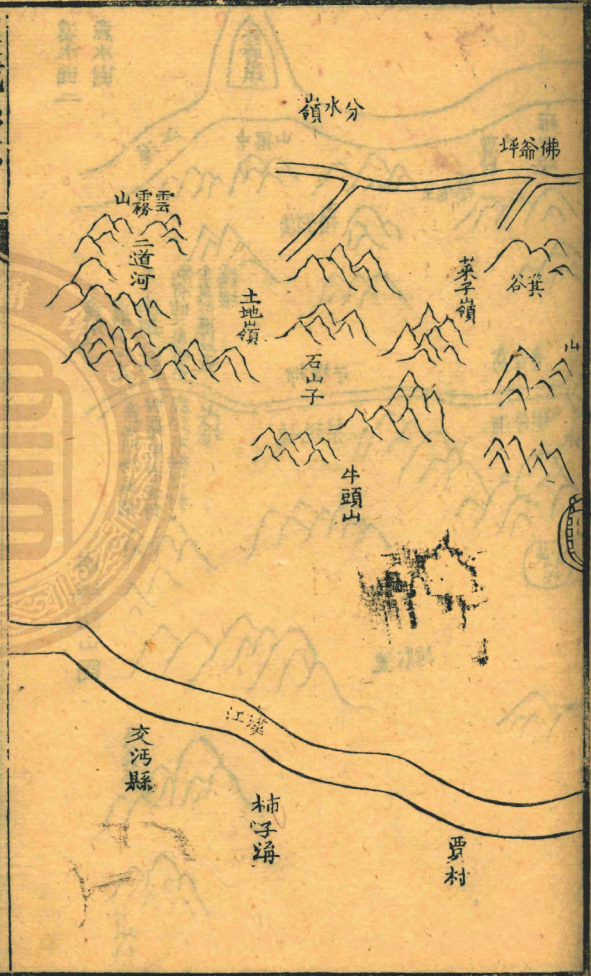 分水嶺
佛爺坪
雲霧山
二道河
土地嶺
菜子嶺
箕谷
山
石山子
牛頭山
漢江
交沔縣
柿子
賈村